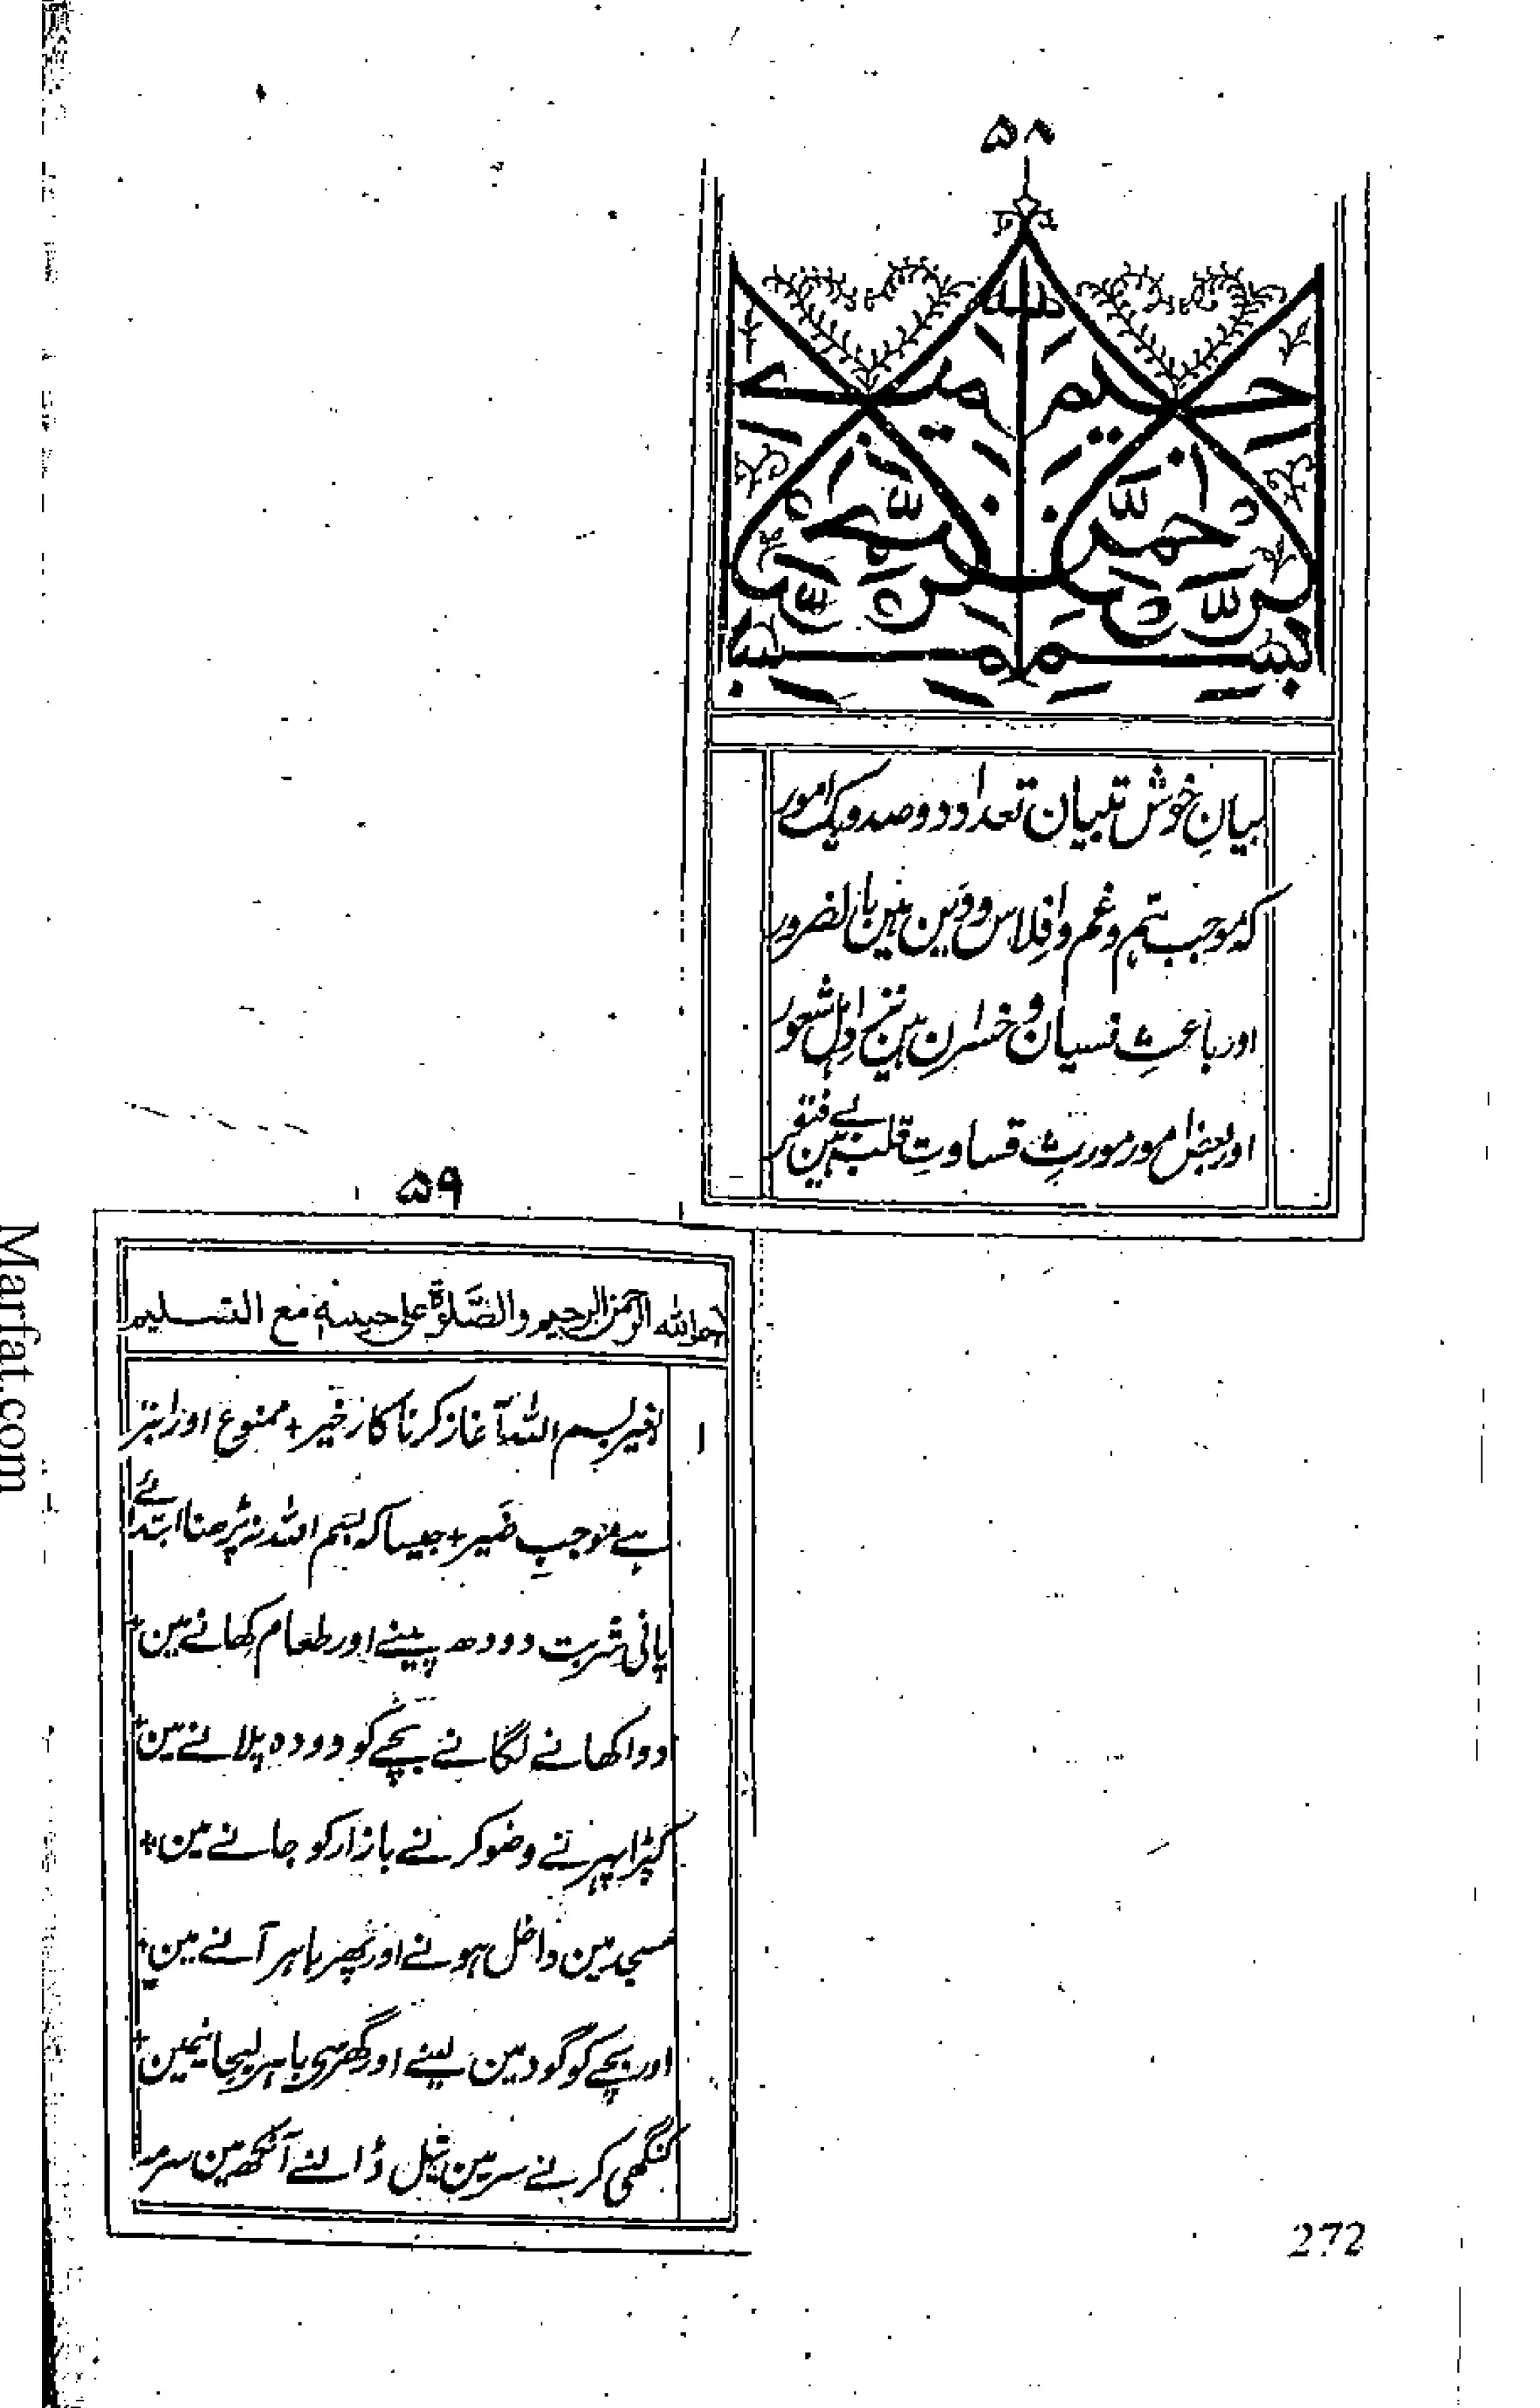 ۵۸
بسم اللہ الرحمن الرحیم
بیانِ خوش تبیان تعداد دو صد و یک امور
کہ موجب ہمّ و غم و افلاس و دَین ہین بالضرور
اور باعثِ نسیان و خسران ہین نزد اہلِ شعور
اور بعض امور مورثِ قساوتِ قلب بے ہین فتور
۵۹
احمد اللہ الرحمن الرحیم والصَّلوٰۃ علی حبیبہ مع التسلیم
۱
بغیر بسم اللہ آغاز کرنا کار خیر + ممنوع اور ابتر
ہے موجبِ ضَیر + جیسا کہ بسم اللہ نہ پڑھنا ابتدائے
پانی شربت دودھ پینے اور طعام کھانے مین +
دوا کھانے لگانے بچے کو دودہ پلانے مین +
کپڑا پہرنے وضو کرنے بازار کو جانے مین +
مسجد مین داخل ہونے اور پھر باہر آنے مین +
اور بچے کو گود مین لینے اور گھر سی باہر لیجانیمین +
کنگھی کرنے سر مین تیل ڈالنے آنکھ مین سرمہ
272
Marfat.com